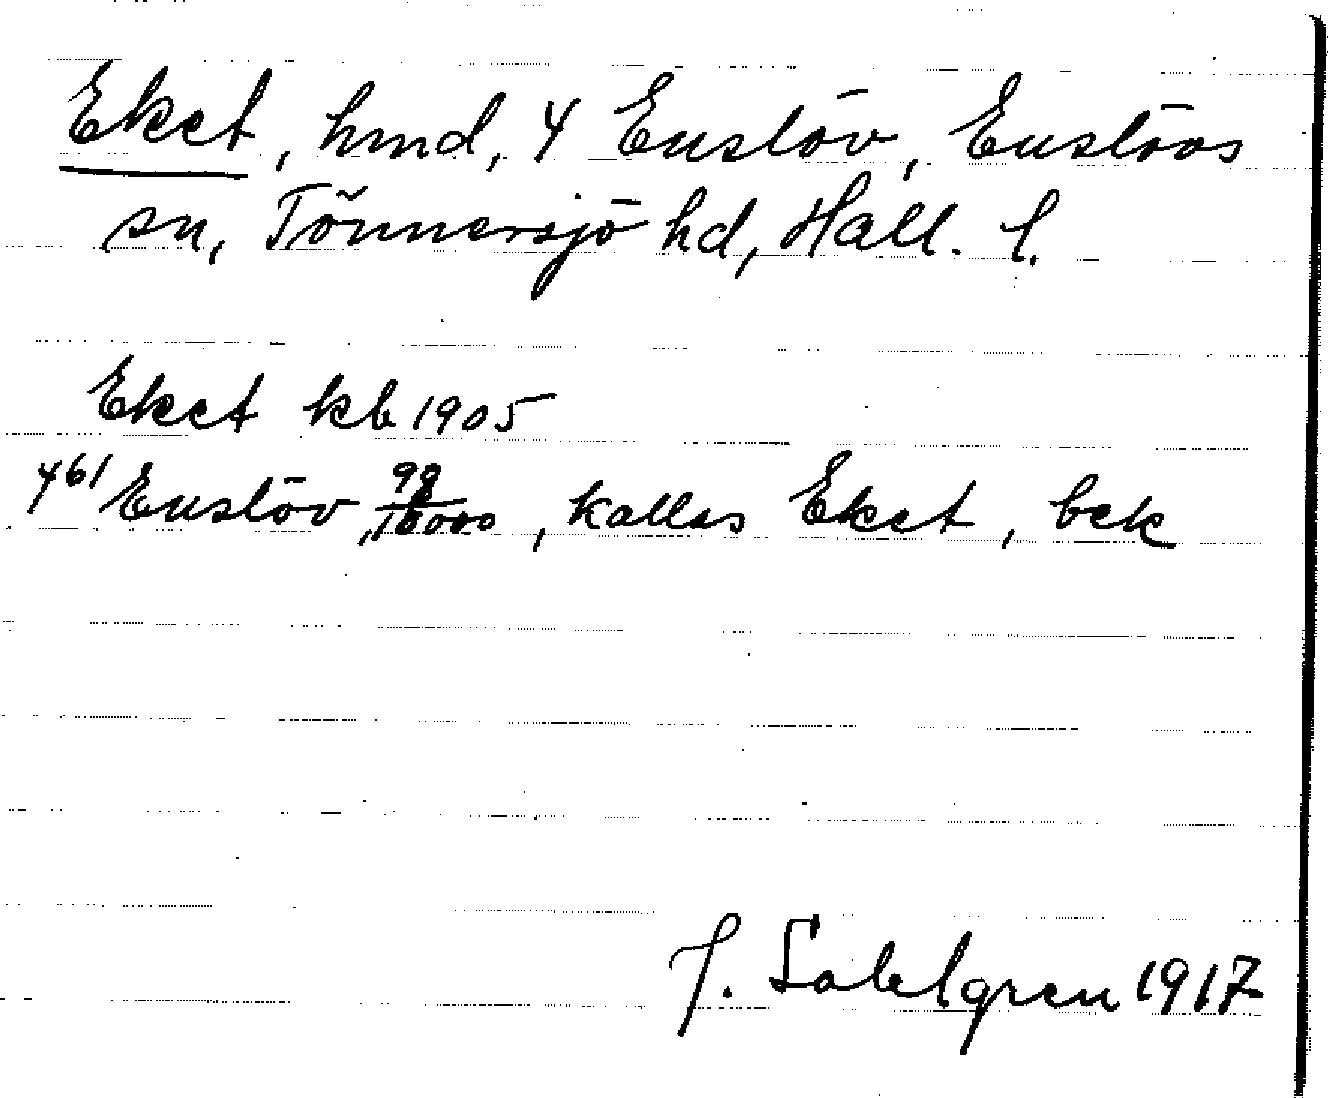 Eket, hmd, 4 Enslöv, Enslövs
sn, Tönnersjö hd, Hall. l.
Eket kb 1905
4⁶¹ Enslöv, 98/10000, kallas Eket, bek
J. Sahlgren 1917